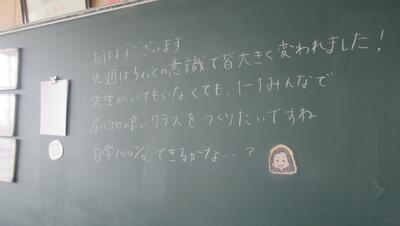 おはようございます
先週はちょっとの意識で皆大きく変われました!
先生がいてもいなくても、1-1みんなで
居心地の良いクラスをつくりたいですね
自学100%、できるかな…?